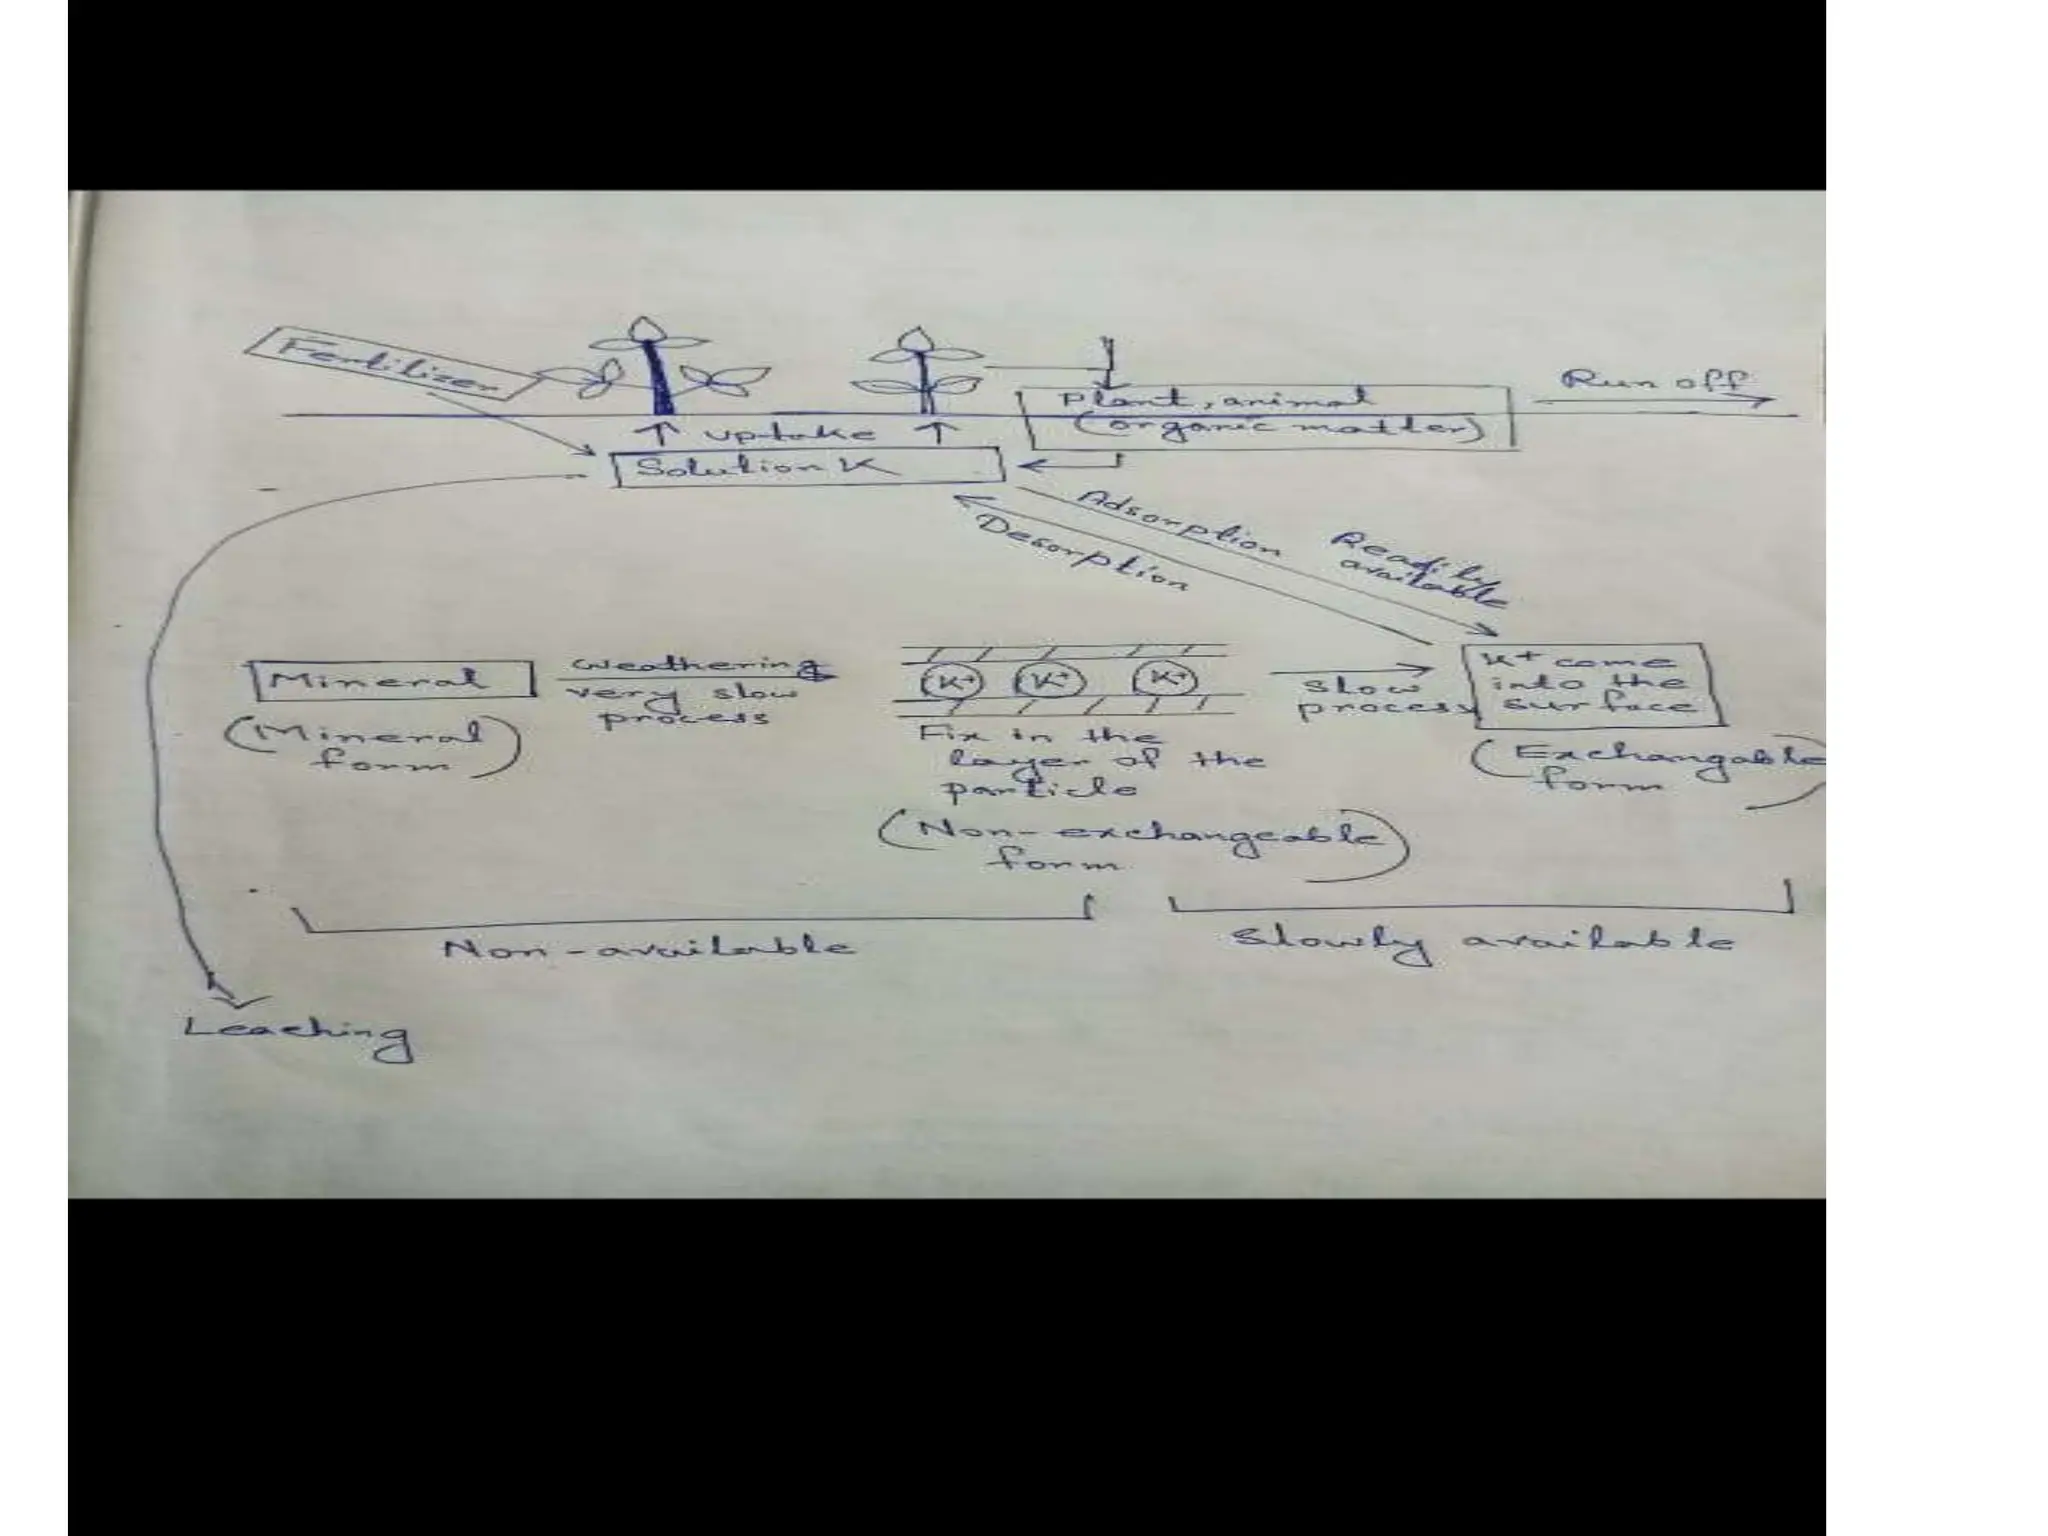 Fertilizer
Run off
Plant, animal
(organic matter)
↑ uptake ↑
Solution K
Adsorption
Desorption
Readily
available
Mineral
(Mineral
form)
Weathering
very slow
process
K+ K+ K+
Fix in the
layer of the
particle
(Non-exchangeable
form)
slow
process
K+ come
into the
surface
(Exchangable
form)
Non-available
Slowly available
Leaching